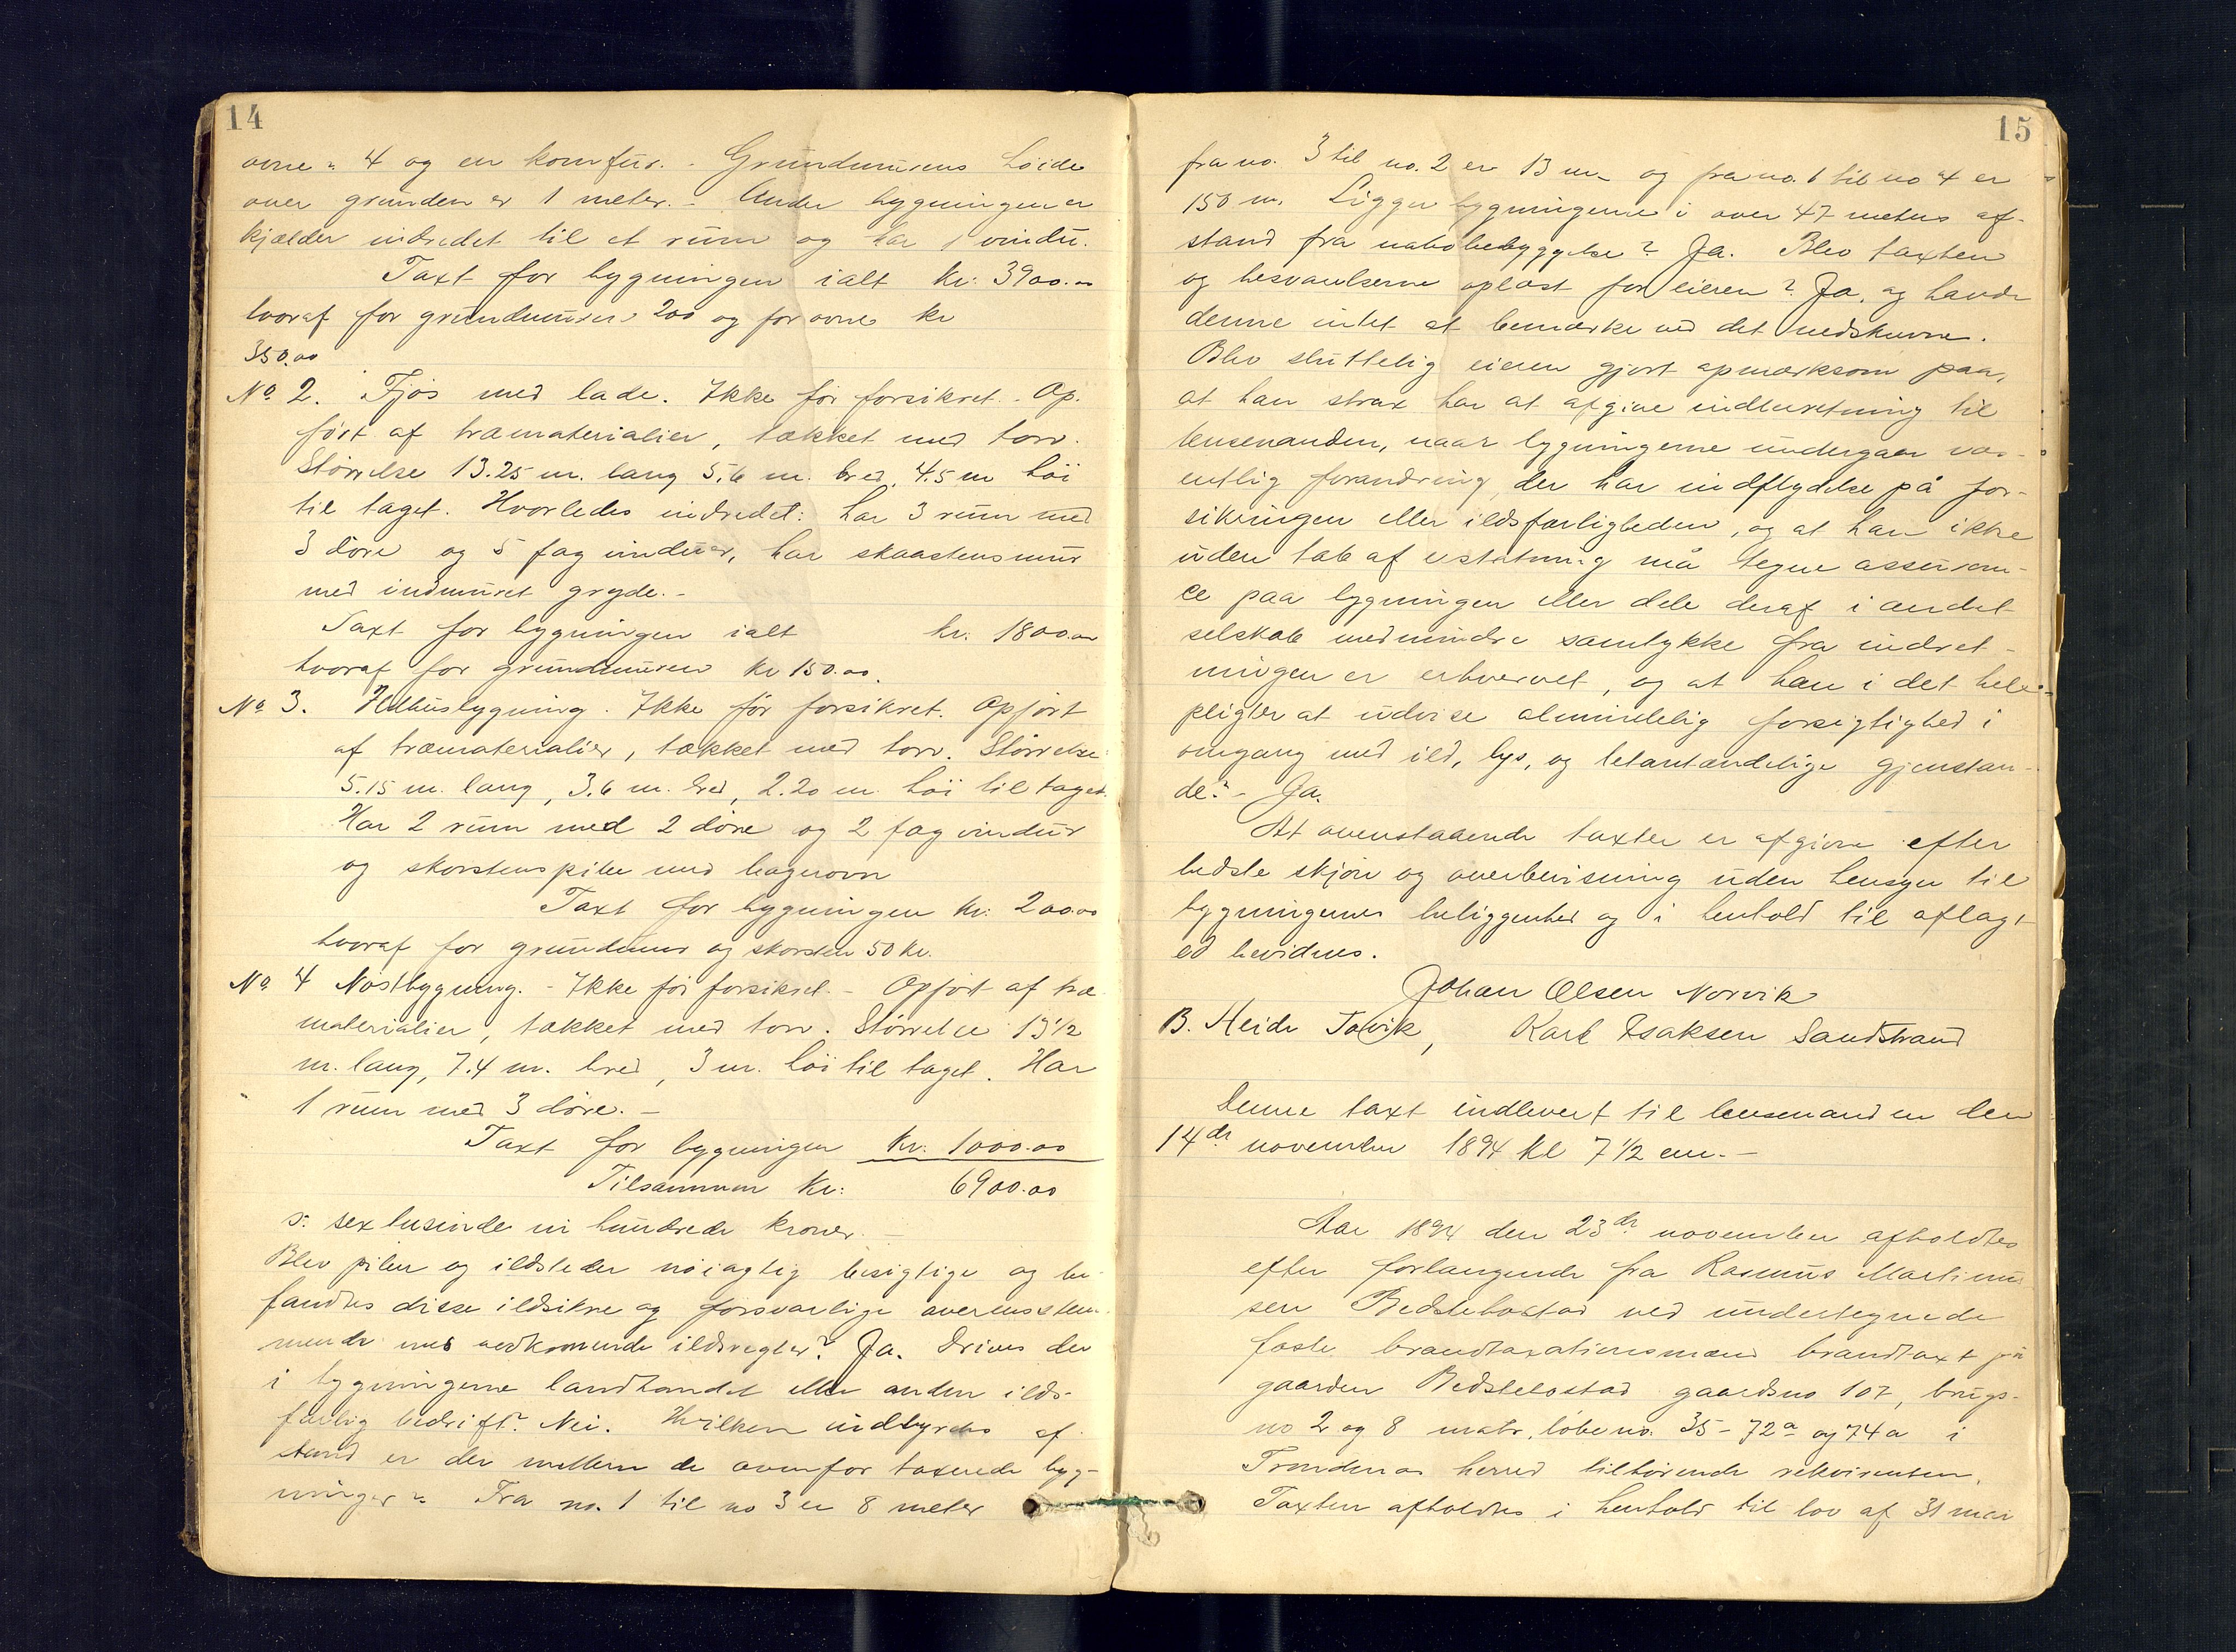 14
ovne: 4 og en komfür. - Grundmurens høide
over grunden er 1 meter. - Under bygningen er
kjælder indredet til et rum og har 1 vindu.
Taxt for bygningen ialt kr: 3900.00
hvoraf for grundmuren 200 og for ovne kr
350.00
No 2. Fjøs med lade. Ikke før forsikret. - Op-
ført af træmaterialier, tækket med torv.
Størrelse 13.25 m. lang 5.6 m. bred, 4.5 m høi
til taget. Hvorledes indredet: har 3 rum med
3 døre og 5 fag vinduer, har skorstensmur
med indmuret gryde. -
Taxt for bygningen ialt kr. 1800.00
hvoraf for grundmuren kr 150.00.
No 3. Ildhusbygning. Ikke før forsikret. Opført
af træmaterialier, tækket med torv. Størrelse:
5.15 m. lang, 3.6 m. bred, 2.20 m. høi til taget.
Har 2 rum med 2 døre og 2 fag vinduer
og skorstenspibe med bagerovn
Taxt for bygningen kr: 200.00
hvoraf for grundmur og skorsten 50 kr.
No 4 Nøstbygning. - Ikke før forsikret. - Opført af træ
materialier, tækket med torv. Størrelse 13 1/2
m. lang, 7.4 m. bred, 3 m. høi til taget. Har
1 rum med 3 døre. -
Taxt for bygningen kr: 1000.00
Tilsammen kr: 6900.00
s: sextusinde ni hundrede kroner. -
Blev piber og ildsteder nøiagtig besigtige og be-
fandtes disse ildsikre og forsvarlige overensstem-
mende med vedkommende ildsregler? Ja. Drives der
i bygningerne landhandel eller anden ilds-
farlig bedrift? Nei. Hvilken indbyrdes af-
stand er der mellem de ovenfor taxerede byg-
ninger? Fra no. 1 til no 3 er 8 meter
15
fra no. 3 til no. 2 er 13 m. og fra no. 1 til no 4 er
150 m. Ligger bygningerne i over 47 meters af-
stand fra nabobebyggelse? Ja. Blev taxten
og besvarelserne oplæst for eieren? Ja, og havde
denne intet at bemærke ved det nedskrevne.
Blev sluttelig eieren gjort opmærksom paa,
at han strax har at afgive indberetning til
lensmanden, naar bygningerne undergaar væs-
entlig forandring, der har indflydelse på for-
sikringen eller ildsfarligheden, og at han ikke
uden tab af erstatning må tegne assuran-
ce paa bygningen eller dele deraf i andet
selskab medmindre samtykke fra indret-
ningen er erhvervet, og at han i det hele
pligter at udvise almindelig forsigtighed i
omgang med ild, lys, og letantændelige gjenstan-
de? - Ja.
At ovenstaaende taxter er afgivne efter
bedste skjøn og overbevisning uden hensyn til
bygningernes beliggenhed og i henhold til aflagt
ed bevidnes.
Johan Olsen Norvik
B. Heide Tovik, Karl Isaksen Sandstrand
Denne taxt indlevert til lensmanden den
14de november 1894 kl 7 1/2 em. -
Aar 1894 den 23de november afholdtes
efter forlangende fra Rasmus Martinus
sen Bedstebostad ved undertegnede
faste brandtaxationsmænd brandtaxt på
gaarden Bedstebostad gaardsno 107, brugs-
no 2 og 8 matr. løbe no. 35 - 72a og 74a i
Trondenæs herred tilhørende rekvirenten.
Taxten afholdtes i henhold til lov af 31 mai